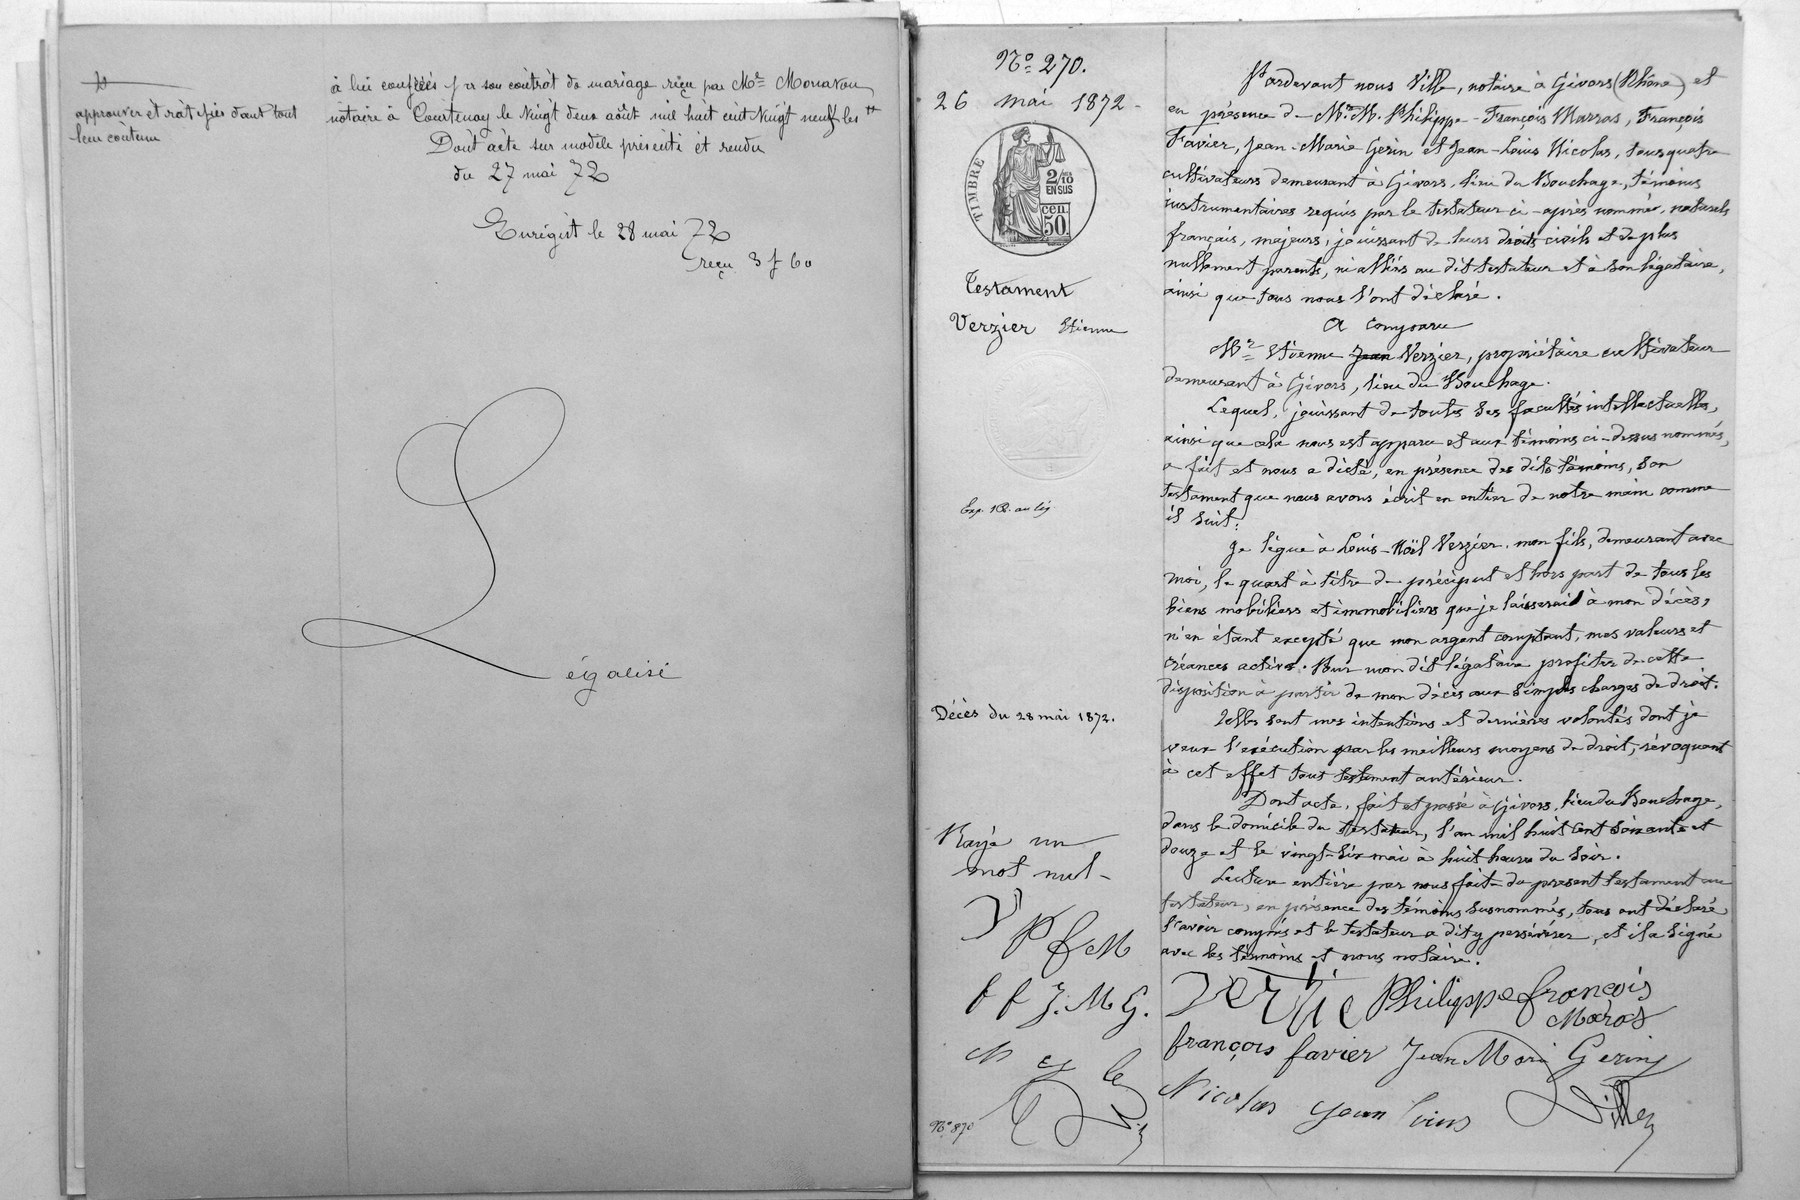 approuver et ratifiés dant tout
leur contenu
à lui conférés par son contrat de mariage reçu par Me
notaire à Courtenay le vingt deux août mil huit cent vingt neuf les
Dont acte sur modèle présenté et rendu
du 27 mai 72
Enregist le 28 mai 72
reçu 3 f 60
Légalisé
No. 270.
26 mai 1872.
TIMBRE
2/10
EN SUS
cen.
50.
Testament
Verzier Etienne
Exp.
Décès du 28 mai 1872.
Rayé un
mot nul
P f M
f f J. M G.
N J L
Pardevant nous Ville, notaire à Givors (Rhône) et
en présence de Mr. M. Philippe-François Marras, François
Favier, Jean-Marie Gerin et Jean-Louis Nicolas, tous quatre
cultivateurs demeurant à Givors, lieu du Bouchage, témoins
instrumentaires requis par le testateur ci-après nommé, naturels
français, majeurs, jouissant de leurs droits civils et de plus
nullement parents, ni alliés au dit testateur et à son légataire,
ainsi que tous nous l'ont déclaré.
A comparu
Mr Etienne Jean Verzier, propriétaire cultivateur
demeurant à Givors, lieu du Bouchage.
Lequel, jouissant de toutes ses facultés intellectuelles,
ainsi que cela nous est apparu et aux témoins ci-dessus nommés,
a fait et nous a dicté, en présence des dits témoins, son
testament que nous avons écrit en entier de notre main comme
il suit:
Je lègue à Louis-Noël Verzier, mon fils, demeurant avec
moi, le quart à titre de préciput et hors part de tous les
biens mobiliers et immobiliers que je laisserai à mon décès,
n'en étant excepté que mon argent comptant, mes valeurs et
créances actives. Pour mon dit légataire profiter de cette
disposition à partir de mon décès aux simples charges de droit.
Telles sont mes intentions et dernières volontés dont je
veux l'exécution par les meilleurs moyens de droit, révoquant
à cet effet tout testament antérieur.
Dont acte, fait et passé à Givors, lieu du Bouchage,
dans le domicile du testateur, l'an mil huit cent soixante et
douze et le vingt-six mai à huit heures du soir.
Lecture entière par nous faite du present testament au
testateur, en présence des témoins susnommés, tous ont déclaré
l'avoir compris et le testateur a dit y persévérer, et il a signé
avec les témoins et nous notaire.
Verzie Philippe françois
Maras
françois favier Jean Marie Gerin
Nicolas jean louis Ville
No 870